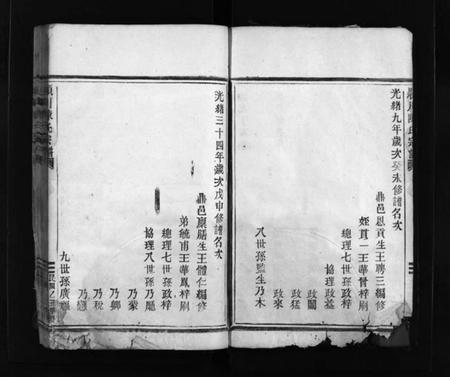 光緒九年歲次癸未修譜名次
鼎邑恩貢生王聘三編修
姪貫一王華晉梓刷
總理七世孫政梓
協理政基
政闓
政猛
政來
八世孫監生乃木
光緒三十四年歲次戊申修譜名次
鼎邑廩膳生王體仁編修
弟毓甫王華鳳梓刷
總理七世孫政梓
協理八世孫乃颺
乃蒙
乃鄉
乃稅
乃戀
九世孫廣